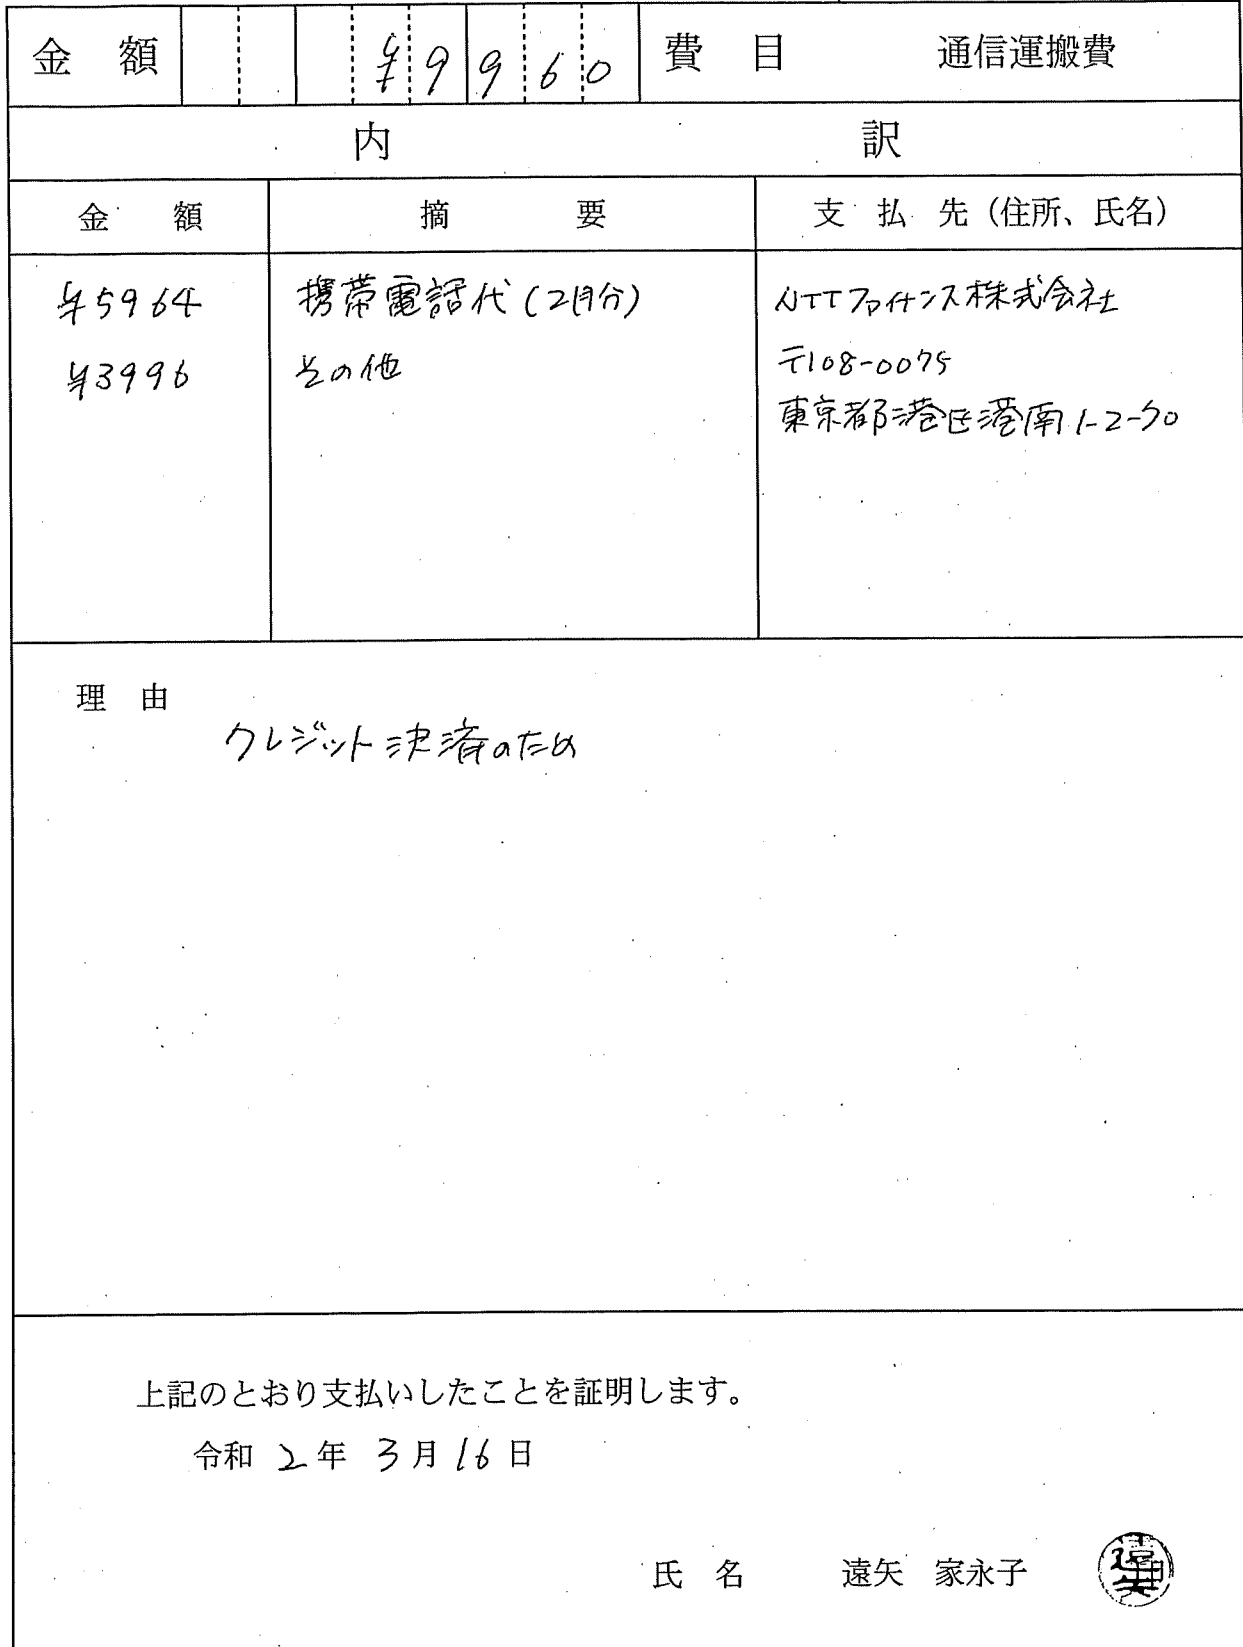 金額 ¥9960 費目 通信運搬費
内訳
金額 摘要 支払先（住所、氏名）
¥5964 携帯電話代(2月分) NTTファイナンス株式会社
¥3996 その他 〒108-0075
東京都港区港南1-2-70
理由
クレジット決済のため
上記のとおり支払いしたことを証明します。
令和2年3月16日
氏名 遠矢 家永子 印
遠矢